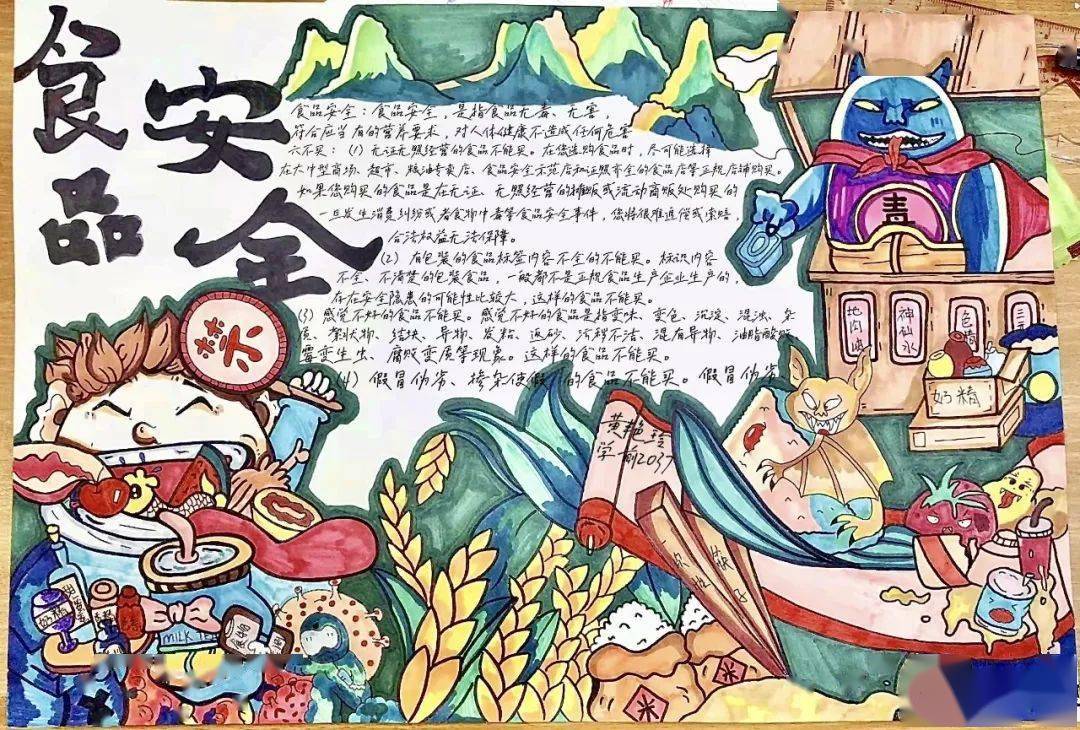 食品
安全
食品安全：食品安全，是指食品无毒、无害，
符合应当有的营养要求，对人体健康不造成任何危害
六不买：（1）无证无照经营的食品不能买。在您选购食品时，尽可能选择
在大中型商场、超市、粮油专卖店、食品安全示范店和证照齐全的食品店等正规店铺购买。
如果您购买的食品是在无证、无照经营的摊贩或流动商贩处购买的
一旦发生消费纠纷或者食物中毒等食品安全事件，您将很难追偿或索赔，
合法权益无法保障。
（2）有包装的食品标签内容不全的不能买。标识内容
不全、不清楚的包装食品，一般都不是正规食品生产企业生产的，
存在安全隐患的可能性比较大，这样的食品不能买。
（3）感觉不好的食品不能买。感觉不好的食品是指变味、变色、沉淀、混浊、杂
质、絮状物、结块、异物、发粘、返砂、洁净不洁、混有异物、油脂酸败
霉变生虫、腐败变质等现象。这样的食品不能买。
（4）假冒伪劣、掺杂使假 的食品不能买。假冒伪劣
毒
神仙水
奶精
黄艳玲
学前2037
筷子
MILK
米
米